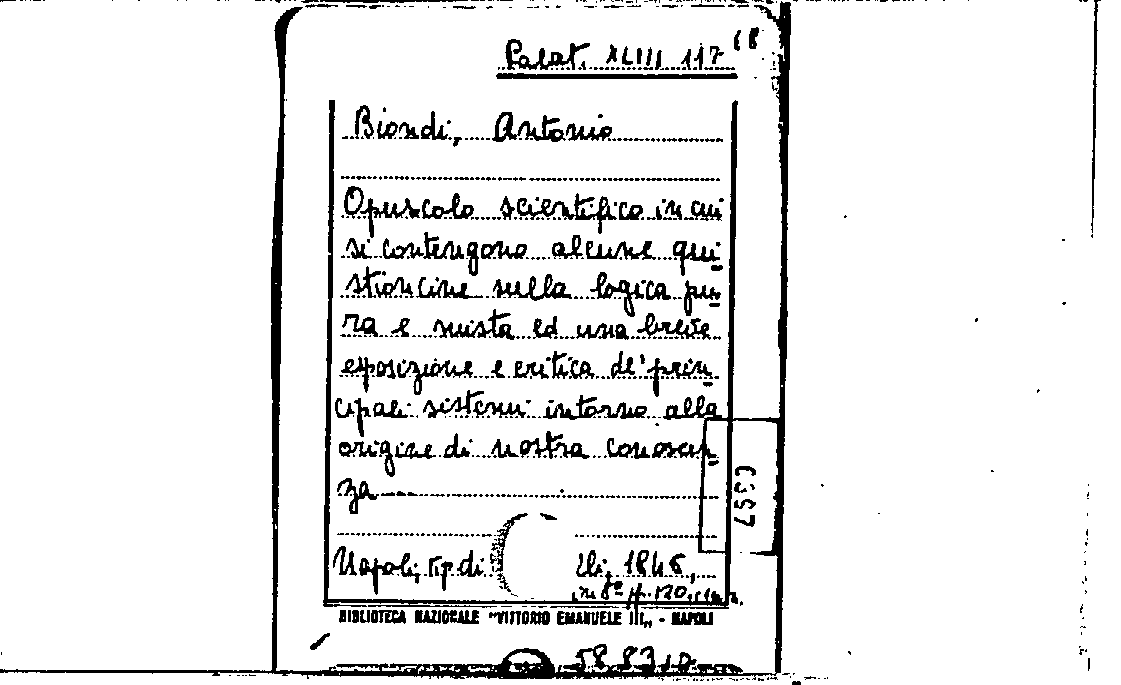 Palat. XLIII 117 68
Biondi, Antonio
Opuscolo scientifico in cui
si contengono alcune qui-
stioncine sulla logica pu-
ra e mista ed una breve
esposizione e critica de' prin-
cipali sistemi intorno alla
origine di nostra conoscen-
za
Napoli, tip. di
lli, 1845,
in 8º pp. 120,
BIBLIOTECA NAZIONALE "VITTORIO EMANUELE III„ - NAPOLI